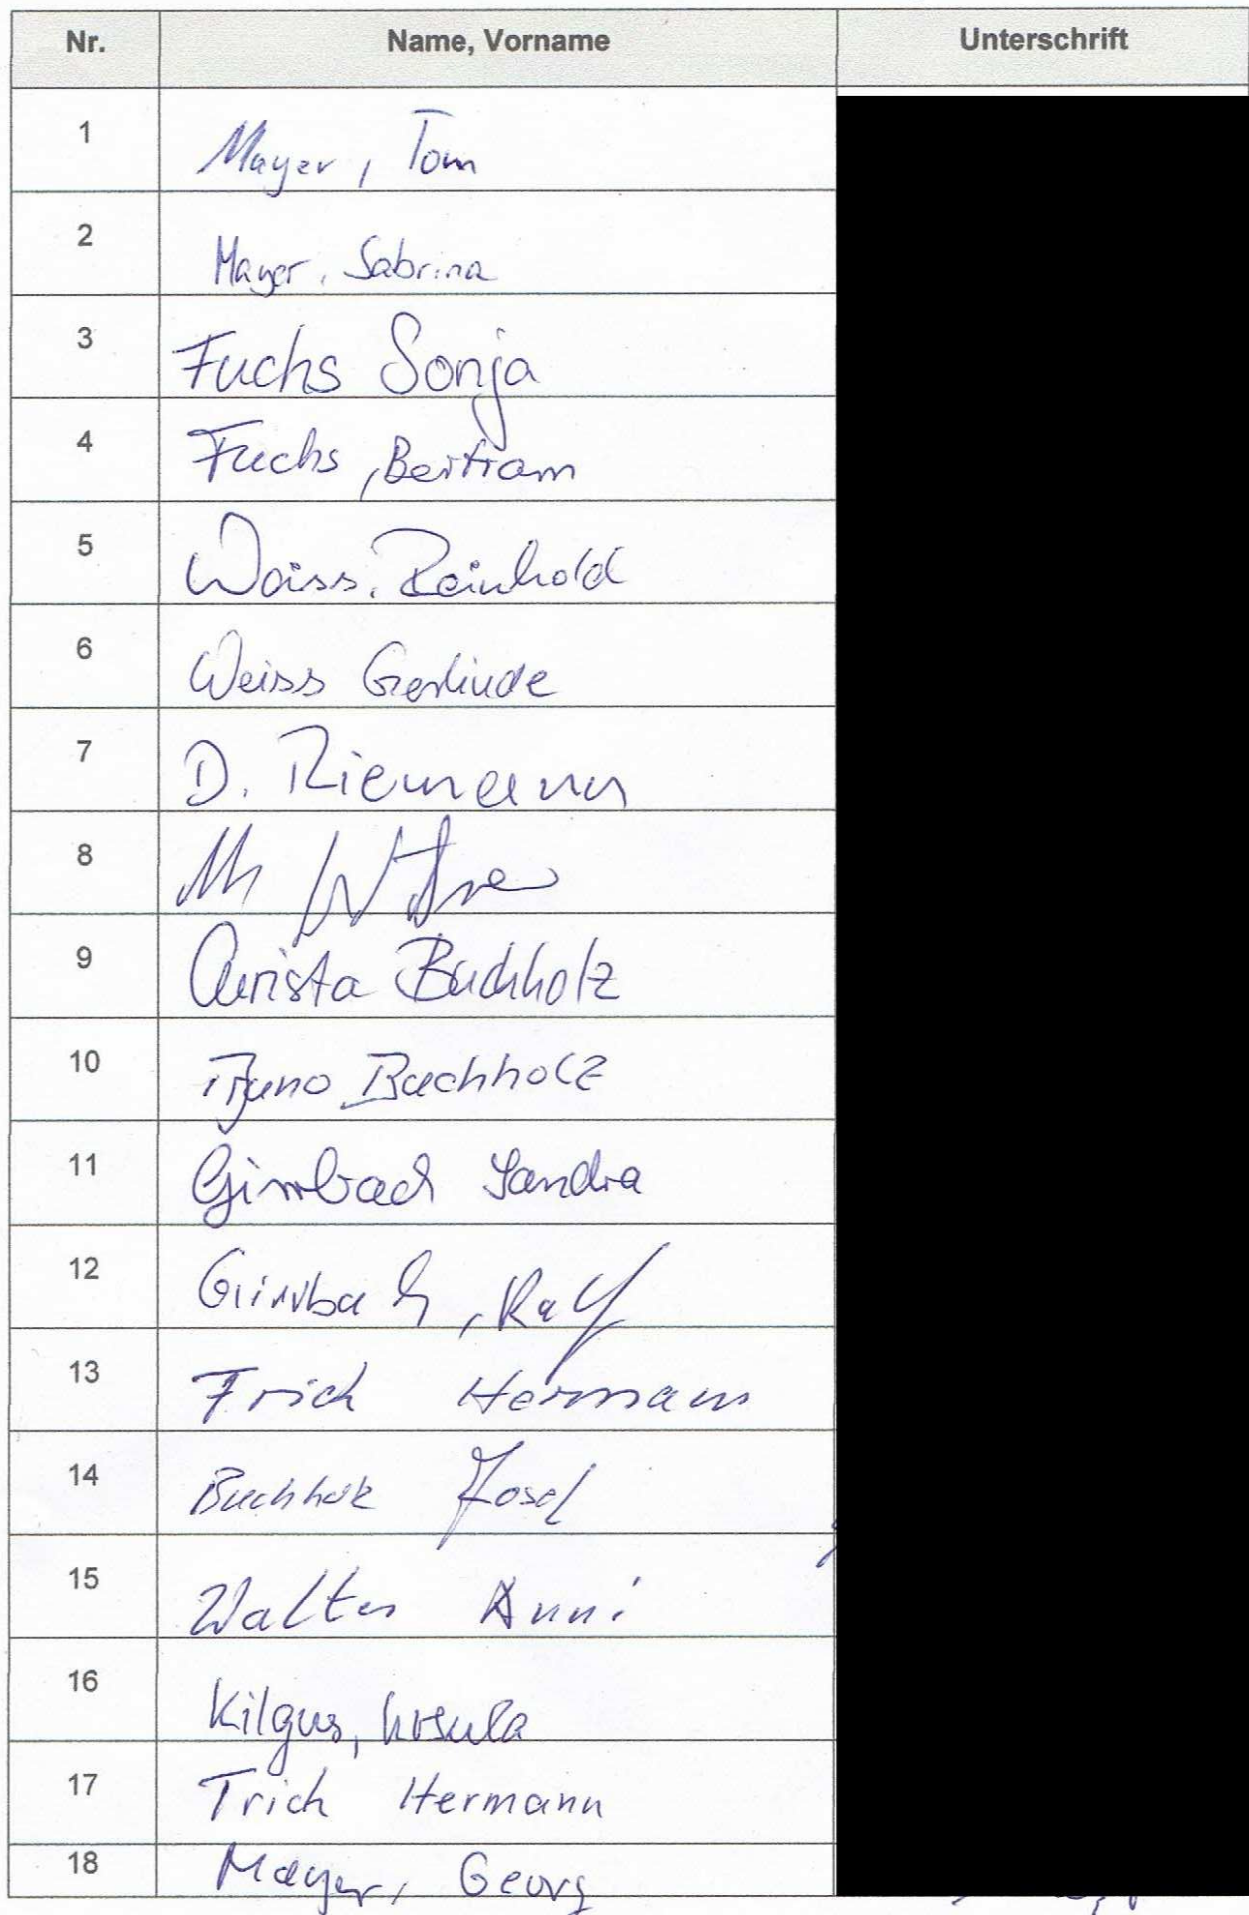 Nr. Name, Vorname Unterschrift
1 Mayer, Tom
2 Mayer, Sabrina
3 Fuchs Sonja
4 Fuchs, Bertram
5 Weiss, Reinhold
6 Weiss Gerlinde
7 D. Riemann
8
9 Christa Buchholz
10 Bruno Buchholz
11 Gimbach Sandra
12 Gimbach, Ralf
13 Frich Hermann
14 Buchholz Josef
15 Walter Anni
16 Kilgus, Ursula
17 Trich Hermann
18 Mayer, Georg